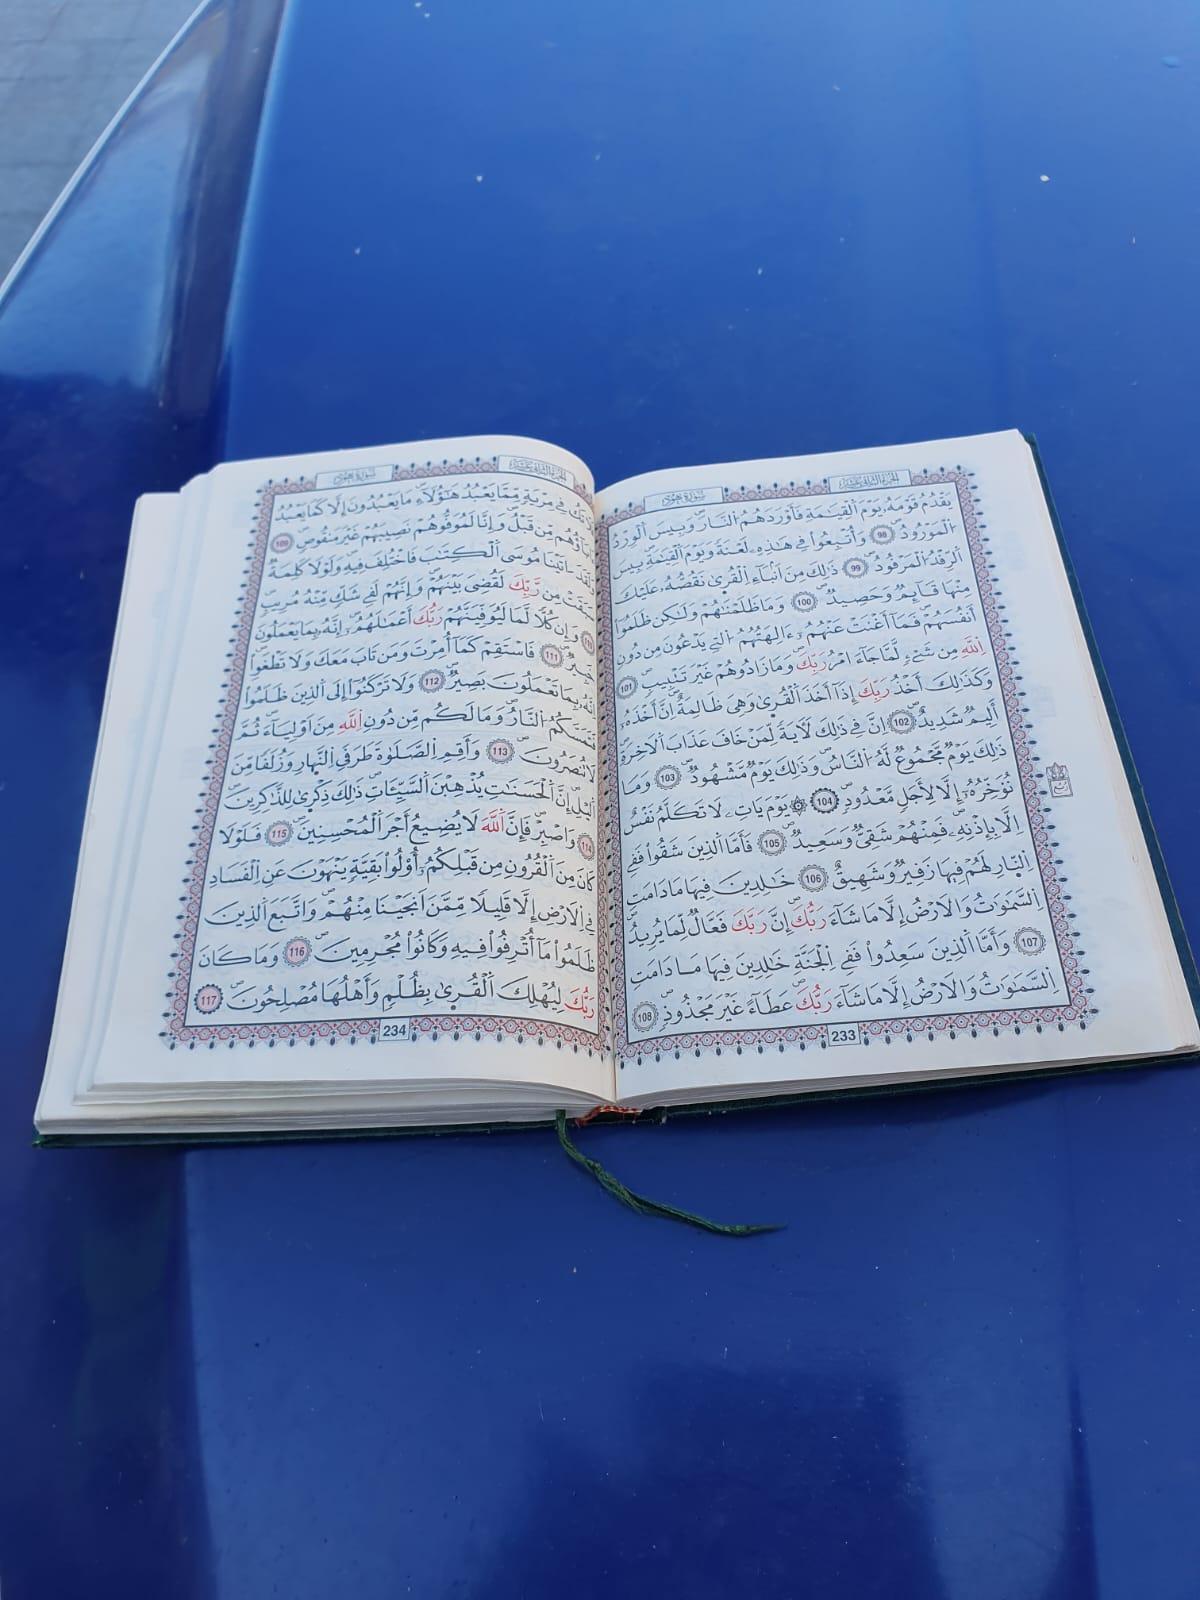 الجزء الثاني عشر
سورة هود
يَقْدُمُ قَوْمَهُۥ يَوْمَ اَ۬لْقِيَٰمَةِ فَأَوْرَدَهُمُ اُ۬لنَّارَ وَبِيسَ اَ۬لْوِرْدُ
اُ۬لْمَوْرُودُ 98 وَأُتْبِعُوا۟ فِے هَٰذِهِۦ لَعْنَةً وَيَوْمَ اَ۬لْقِيَٰمَةِ بِيسَ
اَ۬لرِّفْدُ اُ۬لْمَرْفُودُ 99 ذَٰلِكَ مِنَ اَنۢبَآءِ اِ۬لْقُر۪ىٰ نَقُصُّهُۥ عَلَيْكَ
مِنْهَا قَآئِمٌ وَحَصِيدٌ 100 وَمَا ظَلَمْنَٰهُمْ وَلَٰكِن ظَلَمُوٓا۟
أَنفُسَهُمْ فَمَآ أَغْنَتْ عَنْهُمُۥٓ ءَالِهَتُهُمُ اُ۬لتِے يَدْعُونَ مِن دُونِ
اِ۬للَّهِ مِن شَےْءٍ لَّمَّا جَآءَ امْرُ رَبِّكَ وَمَا زَادُوهُمْ غَيْرَ تَتْبِيبٍ 101
وَكَذَٰلِكَ أَخْذُ رَبِّكَ إِذَآ أَخَذَ اَ۬لْقُر۪ىٰ وَهْىَ ظَٰلِمَةٌ اِنَّ أَخْذَهُۥٓ
أَلِيمٌ شَدِيدٌ 102 إِنَّ فِے ذَٰلِكَ لَأٓيَةً لِّمَنْ خَافَ عَذَابَ اَ۬لَاخِرَةِ
ذَٰلِكَ يَوْمٌ مَّجْمُوعٌ لَّهُ اُ۬لنَّاسُ وَذَٰلِكَ يَوْمٌ مَّشْهُودٌ 103 وَمَا
نُؤَخِّرُهُۥٓ إِلَّا لِأَجَلٍ مَّعْدُودٍ 104 يَوْمَ يَأْتِۦ لَا تَكَلَّمُ نَفْسٌ
اِلَّا بِإِذْنِهِۦ فَمِنْهُمْ شَقِىٌّ وَسَعِيدٌ 105 فَأَمَّا اَ۬لذِينَ شَقُوا۟ فَفِے
اِ۬لنَّارِ لَهُمْ فِيهَا زَفِيرٌ وَشَهِيقٌ 106 خَٰلِدِينَ فِيهَا مَا دَامَتِ
اِ۬لسَّمَٰوَٰتُ وَالَارْضُ إِلَّا مَا شَآءَ رَبُّكَ إِنَّ رَبَّكَ فَعَّالٌ لِّمَا يُرِيدُ
107 وَأَمَّا اَ۬لذِينَ سَعِدُوا۟ فَفِے اِ۬لْجَنَّةِ خَٰلِدِينَ فِيهَا مَا دَامَتِ
اِ۬لسَّمَٰوَٰتُ وَالَارْضُ إِلَّا مَا شَآءَ رَبُّكَ عَطَآءً غَيْرَ مَجْذُوذٍ 108
233
ربع
الجزء الثاني عشر
سورة هود
تَكُ فِے مِرْيَةٍ مِّمَّا يَعْبُدُ هَٰٓؤُلَآءِ مَا يَعْبُدُونَ إِلَّا كَمَا يَعْبُدُ
ءَابَآؤُهُم مِّن قَبْلُ وَإِنَّا لَمُوَفُّوهُمْ نَصِيبَهُمْ غَيْرَ مَنقُوصٍ 109
وَلَقَدَ اٰتَيْنَا مُوسَى اَ۬لْكِتَٰبَ فَاخْتُلِفَ فِيهِ وَلَوْلَا كَلِمَةٌ
سَبَقَتْ مِن رَّبِّكَ لَقُضِىَ بَيْنَهُمْ وَإِنَّهُمْ لَفِے شَكٍّ مِّنْهُ مُرِيبٍ
110 وَإِن كُلًّا لَّمَا لَيُوَفِّيَنَّهُمْ رَبُّكَ أَعْمَٰلَهُمُۥٓ إِنَّهُۥ بِمَا يَعْمَلُونَ
خَبِيرٌ 111 فَاسْتَقِمْ كَمَآ أُمِرْتَ وَمَن تَابَ مَعَكَ وَلَا تَطْغَوِا۟
اِنَّهُۥ بِمَا تَعْمَلُونَ بَصِيرٌ 112 وَلَا تَرْكَنُوٓا۟ إِلَى اَ۬لذِينَ ظَلَمُوا۟
فَتَمَسَّكُمُ اُ۬لنَّارُ وَمَا لَكُم مِّن دُونِ اِ۬للَّهِ مِنَ اَوْلِيَآءَ ثُمَّ
لَا تُنصَرُونَ 113 وَأَقِمِ اِ۬لصَّلَوٰةَ طَرَفَىِ اِ۬لنَّهَارِ وَزُلَفًا مِّنَ
اَ۬ليْلِ إِنَّ اَ۬لْحَسَنَٰتِ يُذْهِبْنَ اَ۬لسَّيِّـَٔاتِ ذَٰلِكَ ذِكْر۪ىٰ لِلذَّٰكِرِينَ
114 وَاصْبِرْ فَإِنَّ اَ۬للَّهَ لَا يُضِيعُ أَجْرَ اَ۬لْمُحْسِنِينَ 115 فَلَوْلَا
كَانَ مِنَ اَ۬لْقُرُونِ مِن قَبْلِكُمُۥٓ أُو۟لُوا۟ بَقِيَّةٍ يَنْهَوْنَ عَنِ اِ۬لْفَسَادِ
فِے اِ۬لَارْضِ إِلَّا قَلِيلًا مِّمَّنَ اَنجَيْنَا مِنْهُمْ وَاتَّبَعَ اَ۬لذِينَ
ظَلَمُوا۟ مَآ أُتْرِفُوا۟ فِيهِ وَكَانُوا۟ مُجْرِمِينَ 116 وَمَا كَانَ
رَبُّكَ لِيُهْلِكَ اَ۬لْقُر۪ىٰ بِظُلْمٍ وَأَهْلُهَا مُصْلِحُونَ 117
234